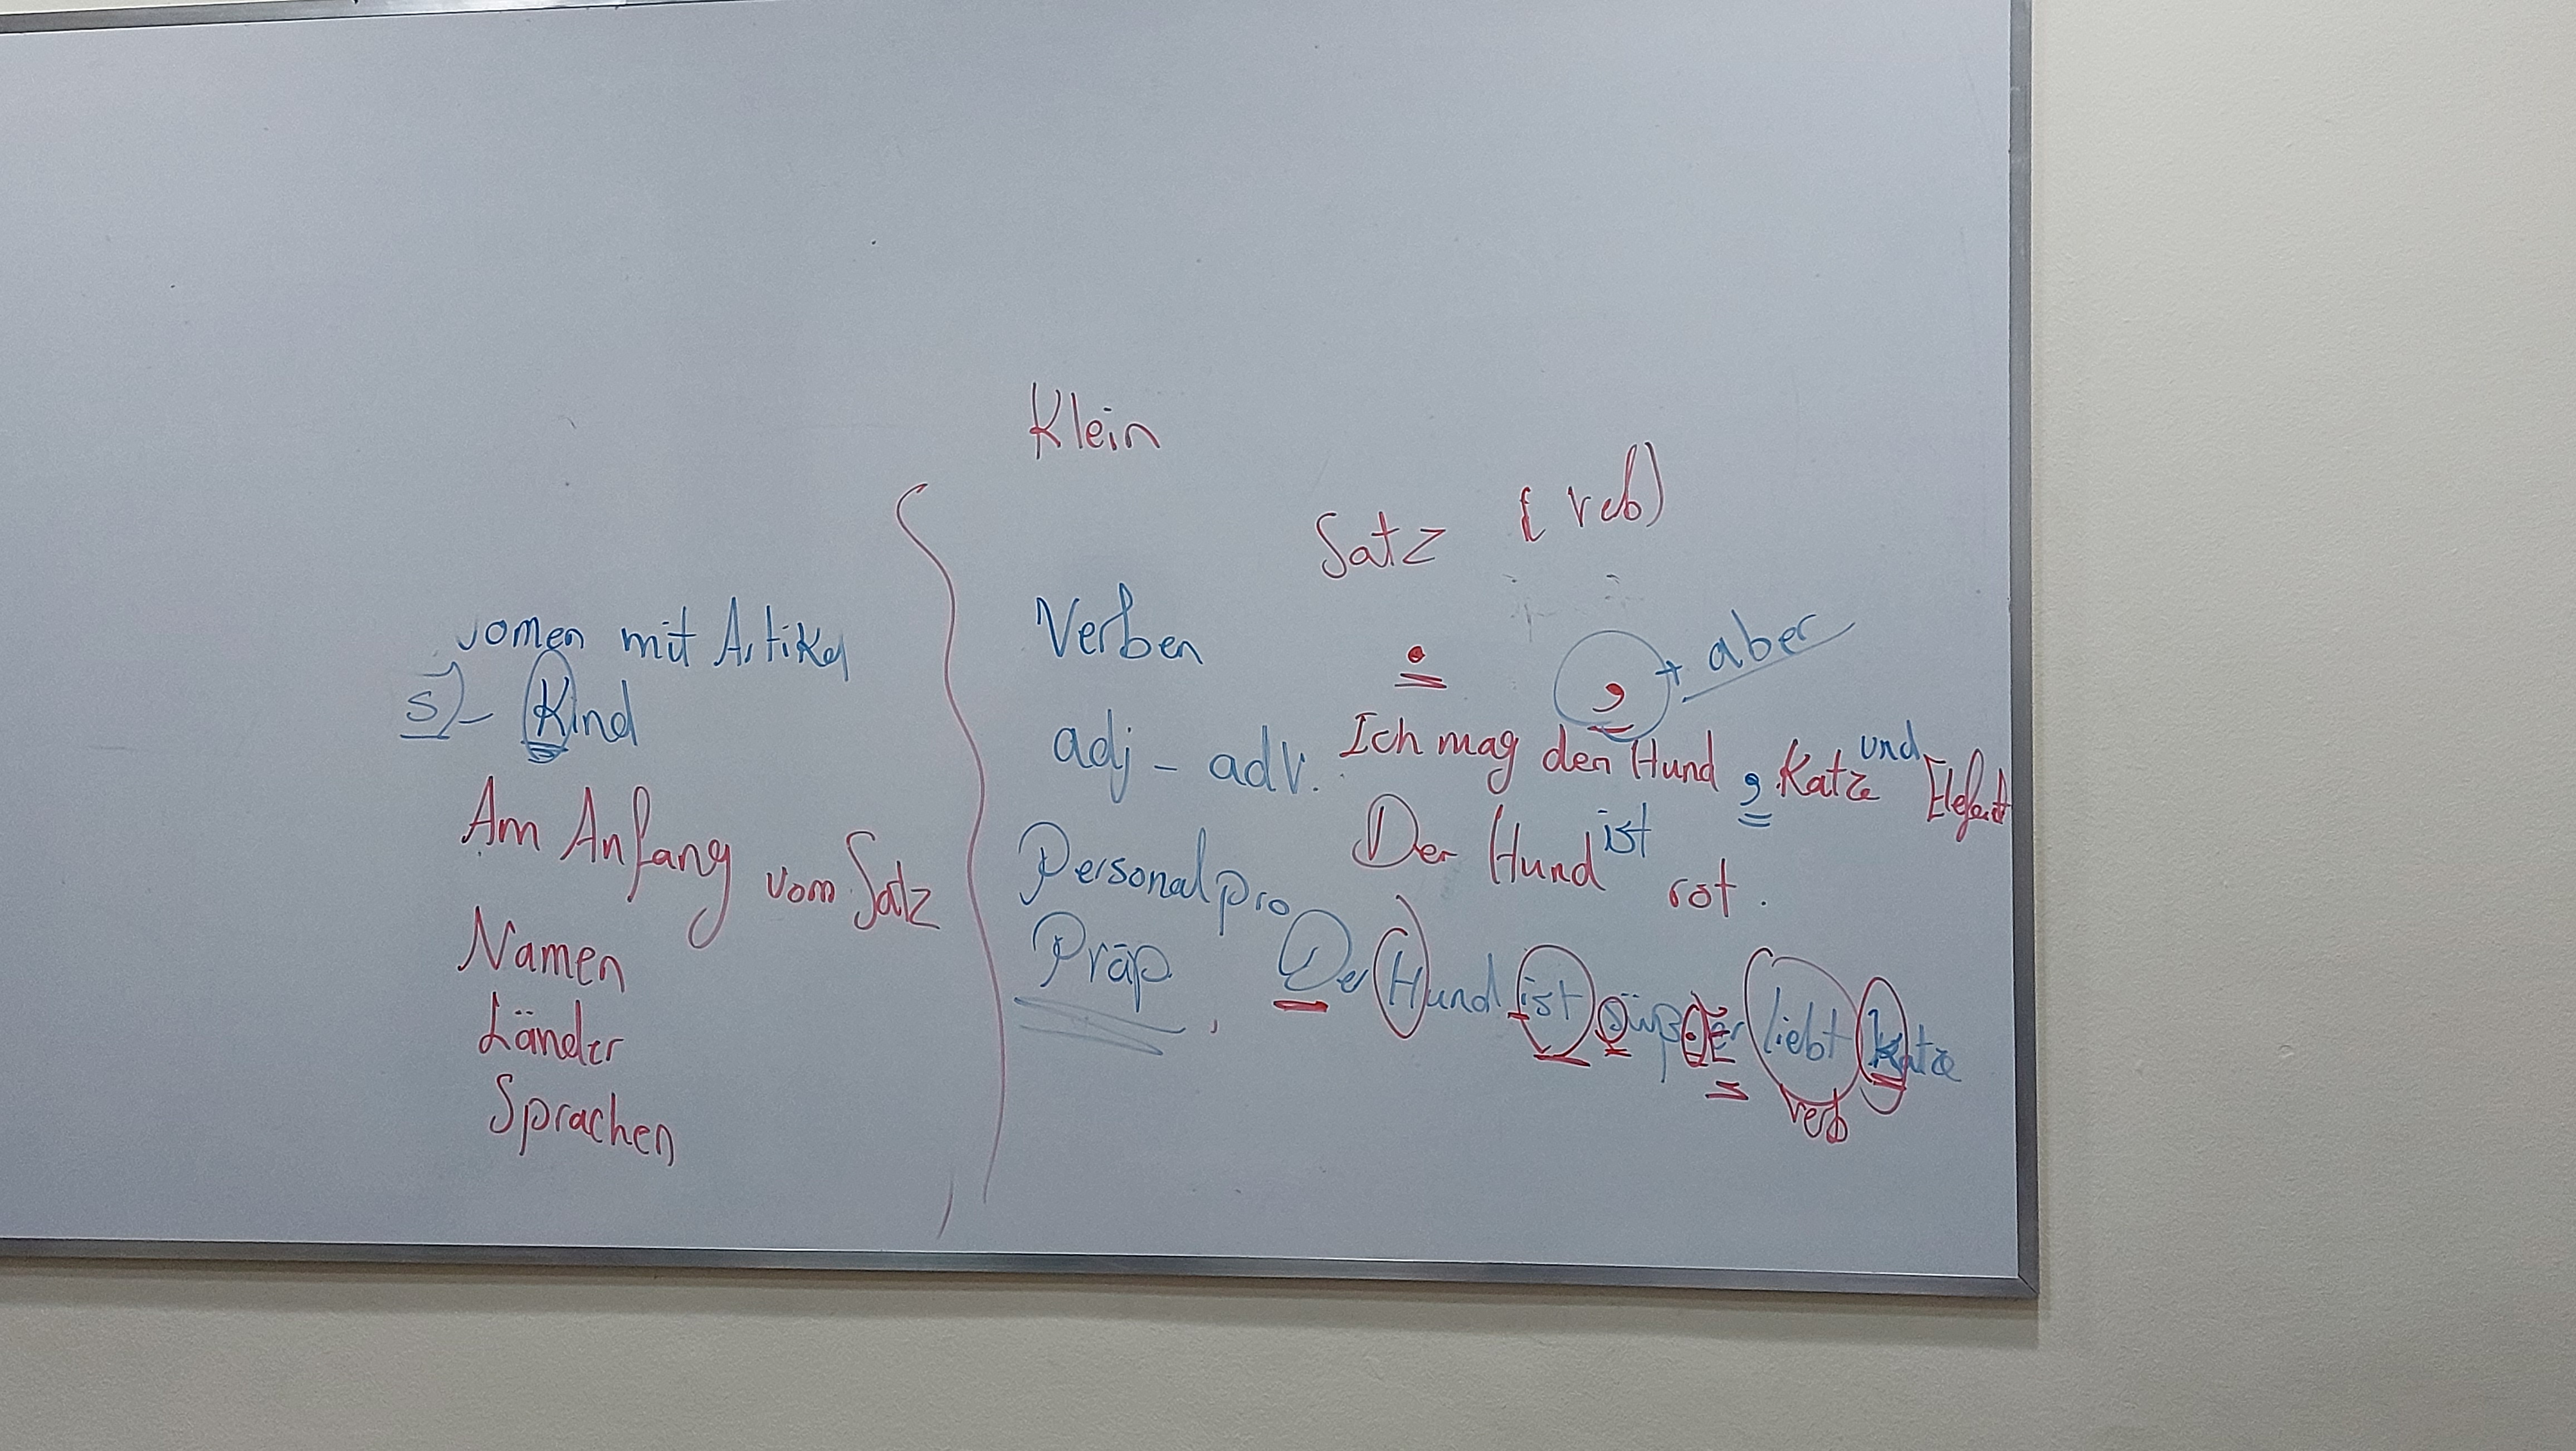 Klein
Satz (verb)
nomen mit Artikel
s) - Kind
Am Anfang vom Satz
Namen
Länder
Sprachen
Verben
adj - adv.
Personalpro
Präp.
. , + aber
Ich mag den Hund, Katze und Elefant
Der Hund ist rot.
Der Hund ist süß. Er liebt Katze
verb